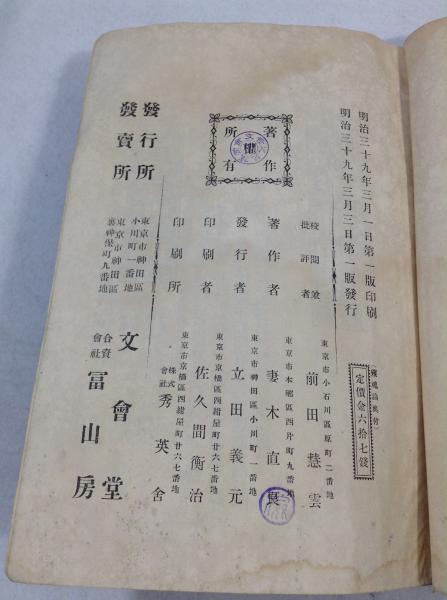 明治三十九年三月一日第一版印刷
明治三十九年三月三日第一版發行
定價金六拾七錢
著作
權
所有
校閲兼
批評者
東京市小石川區原町二番地
前田慧雲
著作者
東京市本郷區西片町九番地
妻木直良
發行者
東京市神田區小川町一番地
立田義元
印刷者
東京市京橋區西紺屋町廿六七番地
佐久間衡治
印刷所
東京市京橋區西紺屋町廿六七番地
株式會社 秀英舍
發行所
東京市神田區
小川町一番地
文會堂
發賣所
東京市神田區
裏神保町九番地
合資會社 富山房